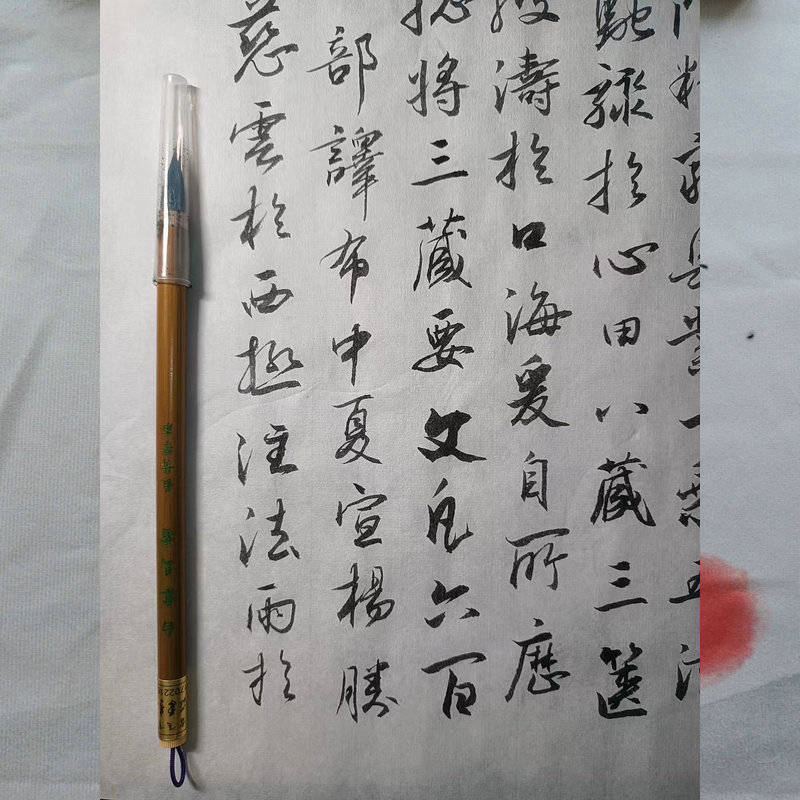 精窮業一乘五
馳驟於心田八藏三篋
濤於口海爰自所歷
將三藏要文凡六百
部譯布中夏宣楊勝
慈雲於西極注法雨於